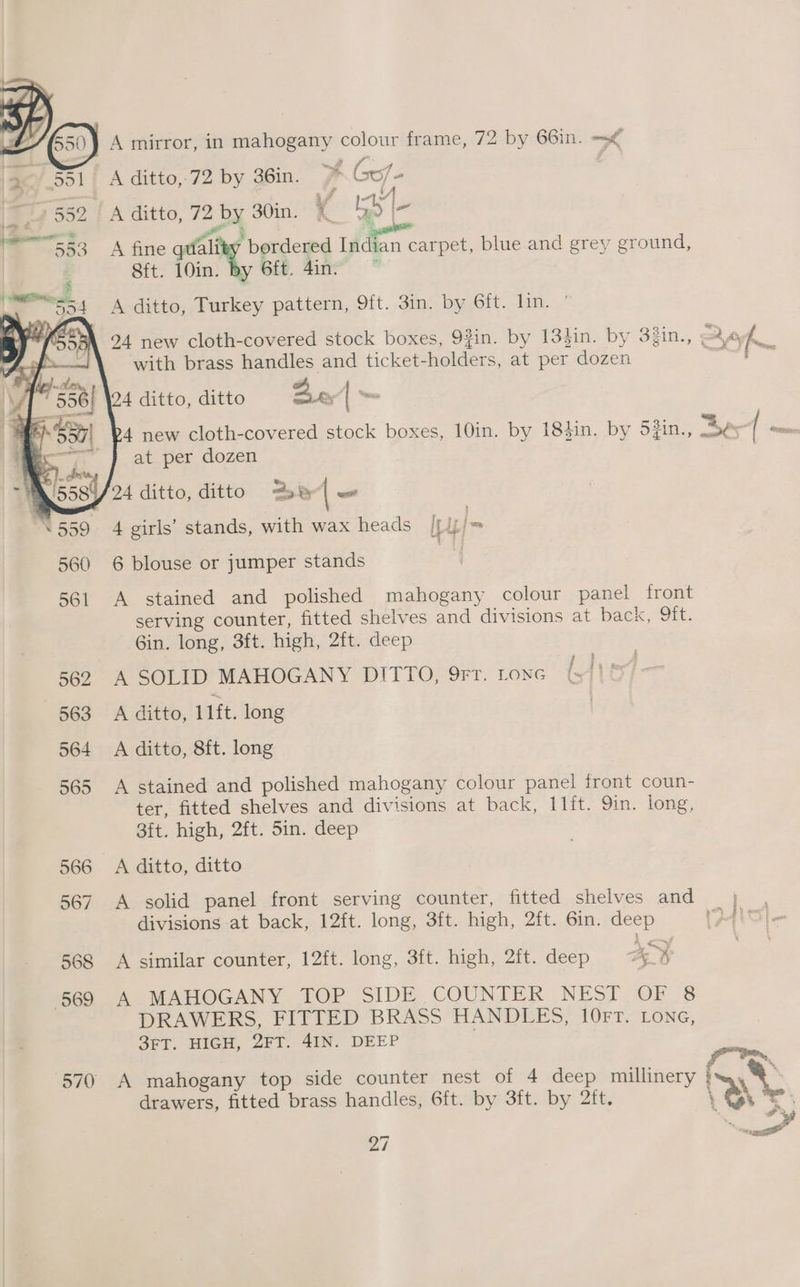 550 A mirror, in mahogany colour frame, 72 by 66in.
551 A ditto, 72 by 36in.
552 A ditto, 72 by 30in.
553 A fine quality bordered Indian carpet, blue and grey ground,
8ft. 10in. by 6ft. 4in.
554 A ditto, Turkey pattern, 9ft. 3in. by 6ft. 1in.
555 24 new cloth-covered stock boxes, 9¾in. by 13½in. by 3¾in.,
with brass handles and ticket-holders, at per dozen
556 24 ditto, ditto
557 24 new cloth-covered stock boxes, 10in. by 18½in. by 5¾in.,
at per dozen
558 24 ditto, ditto
559 4 girls' stands, with wax heads
560 6 blouse or jumper stands
561 A stained and polished mahogany colour panel front
serving counter, fitted shelves and divisions at back, 9ft.
6in. long, 3ft. high, 2ft. deep
562 A SOLID MAHOGANY DITTO, 9FT. LONG
563 A ditto, 11ft. long
564 A ditto, 8ft. long
565 A stained and polished mahogany colour panel front coun-
ter, fitted shelves and divisions at back, 11ft. 9in. long,
3ft. high, 2ft. 5in. deep
566 A ditto, ditto
567 A solid panel front serving counter, fitted shelves and
divisions at back, 12ft. long, 3ft. high, 2ft. 6in. deep
568 A similar counter, 12ft. long, 3ft. high, 2ft. deep
569 A MAHOGANY TOP SIDE COUNTER NEST OF 8
DRAWERS, FITTED BRASS HANDLES, 10FT. LONG,
3FT. HIGH, 2FT. 4IN. DEEP
570 A mahogany top side counter nest of 4 deep millinery
drawers, fitted brass handles, 6ft. by 3ft. by 2ft.
27